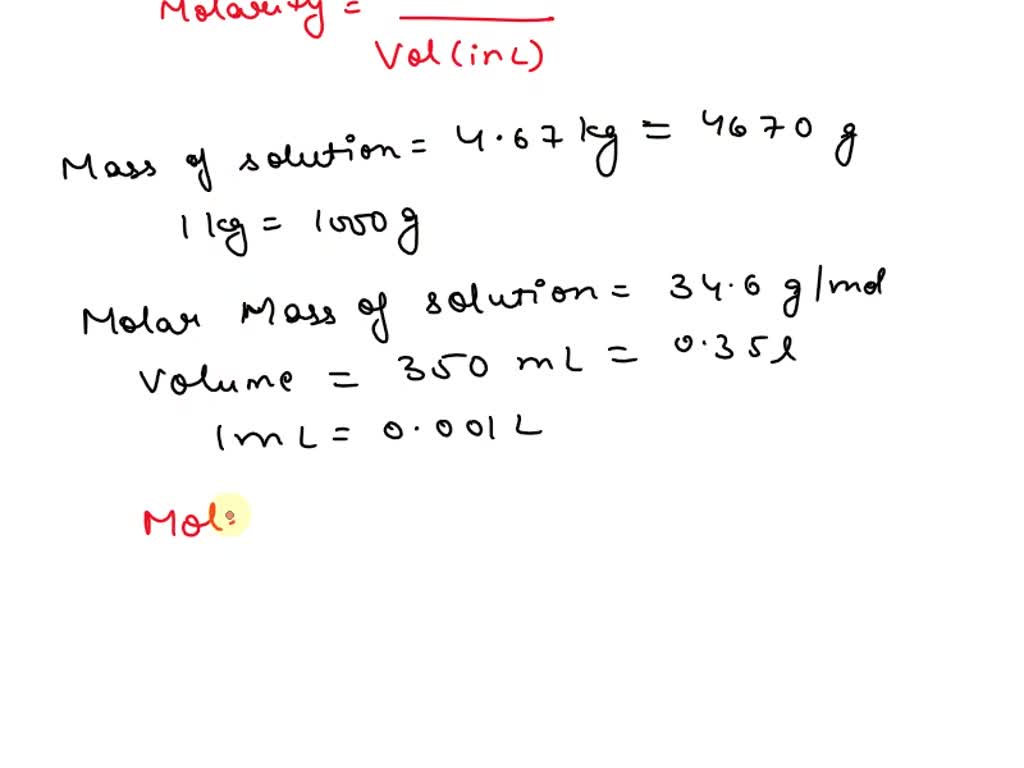 Molarity =
Vol (in L)
Mass of solution = 4.67 kg = 4670 g
1 kg = 1000 g
Molar Mass of solution = 34.6 g/mol
Volume = 350 mL = 0.35 l
1 mL = 0.001 L
Mol